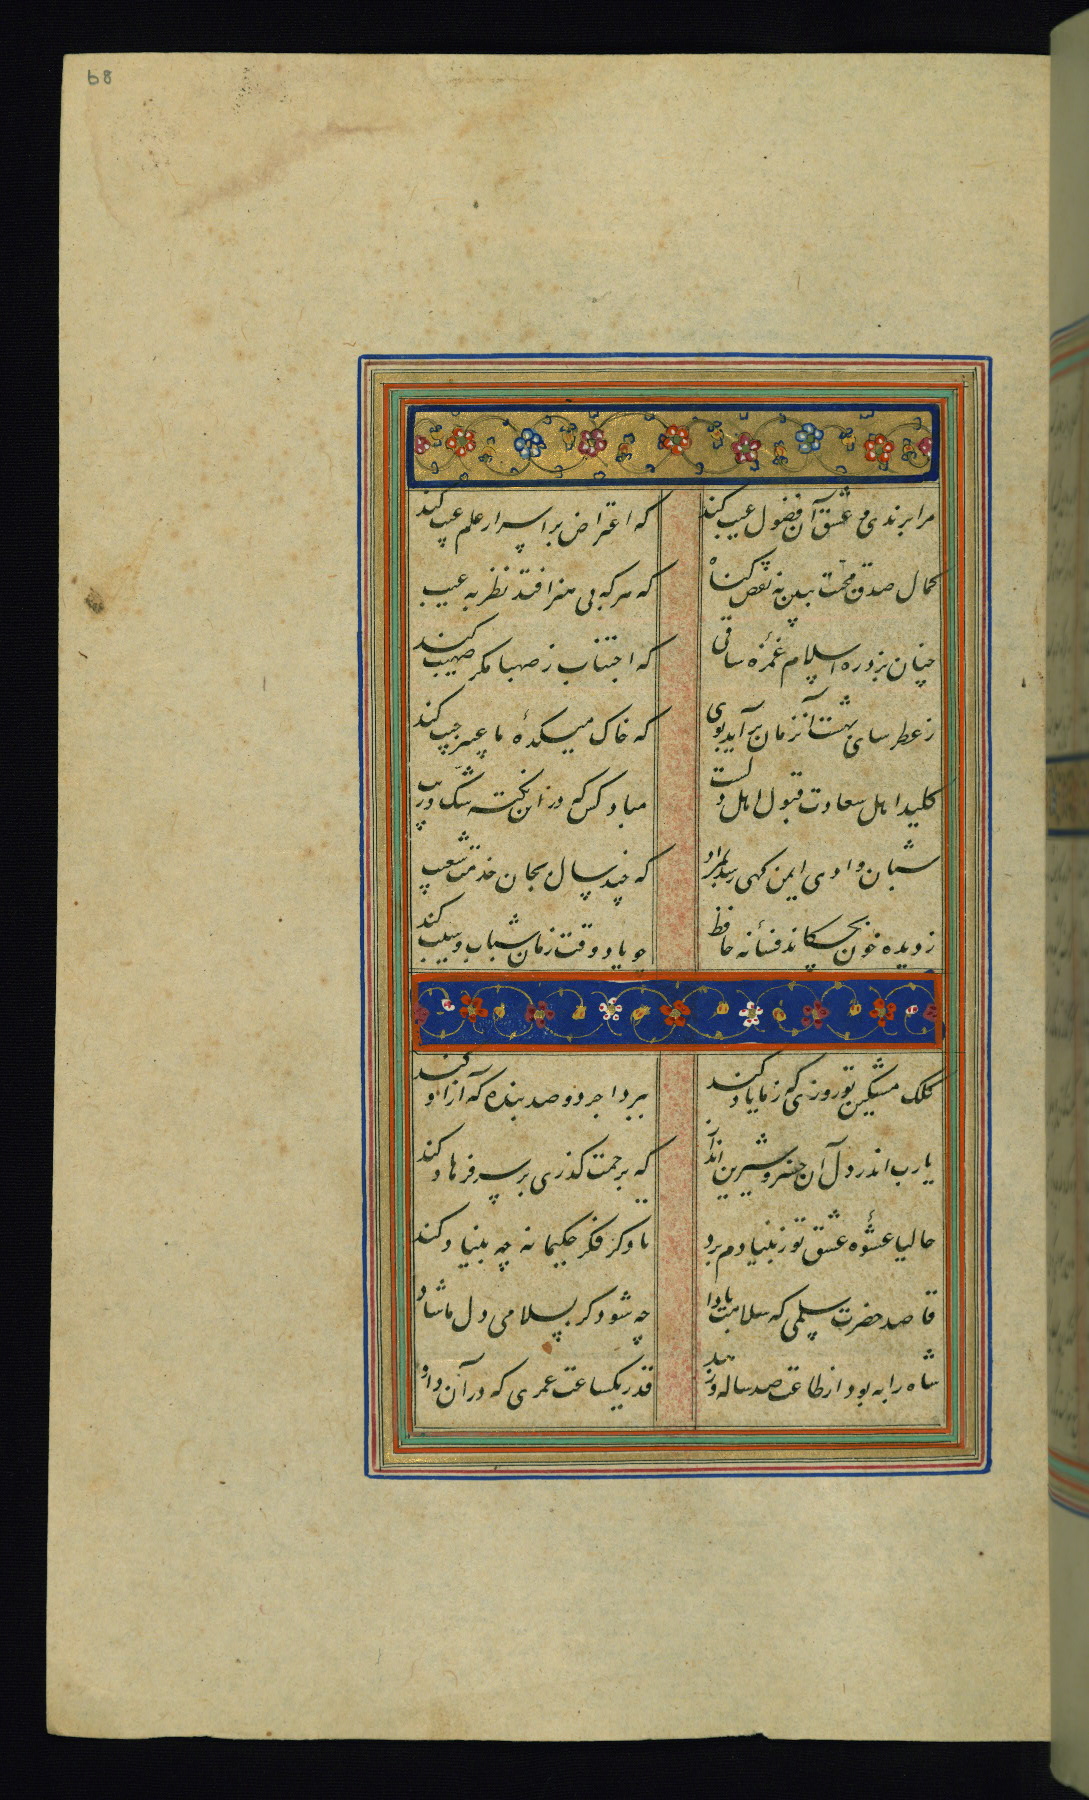 68
مرا برندی و عشق آن فضول عیب کند که اعتراض بر اسرار علم غیب کند
کمال صدق محبت ببین نه نقص گناه که هرکه بی هنر افتد نظر به عیب
چنان بزد ره اسلام غمزه ساقی که اجتناب ز صهبا مکر صهیب کند
ز عطر سای بهشت آنزمان برآید بوی که خاک میکدهٔ ما عبیر جیب کند
کلید اهل سعادت قبول اهل دلست مباد کس که در این نکته شک و ریب
شبان وادی ایمن کهی رسد بمراد که چند سال بجان خدمت شعیب
ز دیده خون بچکاند فسانه حافظ چو یاد وقت زمان شباب و شیب کند
کلک مشکین تو روزی که ز ما یاد کند ببرد اجر دو صد بنده که آزاد
یارب اندر دل آن خسرو شیرین انداز که برحمت کذری بر سر فرهاد کند
حالیا عشوهٔ عشق تو ز بنیادم برد تا دکر فکر حکیمانه چه بنیاد کند
قاصد حضرت سلمی که سلامت بادا چه شود کر بسلامی دل ما شاد
شاه را به بود از طاعت صد ساله و زهد قدر یکساعت عمری که در آن داد